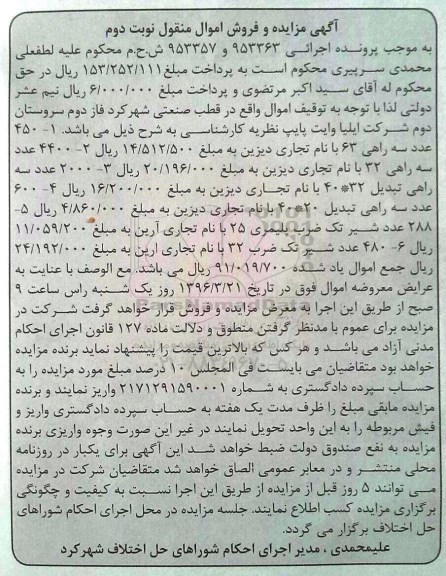 آگهی مزایده و فروش اموال منقول نوبت دوم
به موجب پرونده اجرائی ۹۵۳۳۶۳ و ۹۵۳۳۵۷ ش.ح.م محکوم علیه لطفعلی
محمدی سرپیری محکوم است به پرداخت مبلغ ۱۵۳/۲۵۲/۱۱۱ ریال در حق
محکوم له آقای سید اکبر مرتضوی و پرداخت مبلغ ۶/۰۰۰/۰۰۰ ریال نیم عشر
دولتی لذا با توجه به توقیف اموال واقع در قطب صنعتی شهرکرد فاز دوم سروستان
دوم شرکت ایلیا وایت پایپ نظریه کارشناسی به شرح ذیل می باشد. ۱- ۴۵۰
عدد سه راهی ۶۳ با نام تجاری دیزین به مبلغ ۱۴/۵۱۲/۵۰۰ ریال ۲- ۴۴۰۰ عدد
سه راهی ۳۲ با نام تجاری دیزین به مبلغ ۲۰/۱۹۶/۰۰۰ ریال ۳- ۲۰۰۰ عدد سه
راهی تبدیل ۳۲*۴۰ با نام تجاری دیزین به مبلغ ۱۶/۲۰۰/۰۰۰ ریال ۴- ۶۰۰
عدد سه راهی تبدیل ۲۰*۴۰ با نام تجاری دیزین به مبلغ ۴/۸۶۰/۰۰۰ ریال ۵-
۲۸۸ عدد شیر تک ضرب پلیمری ۲۵ با نام تجاری آرین به مبلغ ۱۱/۰۵۹/۲۰۰
ریال ۶- ۴۸۰ عدد شیر تک ضرب ۳۲ با نام تجاری ارین به مبلغ ۲۴/۱۹۲/۰۰۰
ریال جمع اموال یاد شده ۹۱/۰۱۹/۷۰۰ ریال می باشد. مع الوصف با عنایت به
عرایض معروضه اموال فوق در تاریخ ۱۳۹۶/۳/۲۱ روز یک شنبه راس ساعت ۹
صبح از طریق این اجرا به معرض مزایده و فروش قرار خواهد گرفت شرکت در
مزایده برای عموم با مدنظر گرفتن منطوق و دلالت ماده ۱۲۷ قانون اجرای احکام
مدنی آزاد می باشد و هر کس که بالاترین قیمت را پیشنهاد نماید برنده مزایده
خواهد بود متقاضیان می بایست فی المجلس ۱۰ درصد مبلغ مورد مزایده را به
حساب سپرده دادگستری به شماره ۲۱۷۱۲۹۱۵۹۰۰۰۱ واریز نمایند و برنده
مزایده مابقی مبلغ را ظرف مدت یک هفته به حساب سپرده دادگستری واریز و
فیش مربوطه را به این واحد تحویل نمایند در غیر این صورت وجوه واریزی برنده
مزایده به نفع صندوق دولت ضبط خواهد شد این آگهی برای یکبار در روزنامه
محلی منتشر و در معابر عمومی الصاق خواهد شد متقاضیان شرکت در مزایده
می توانند ۵ روز قبل از مزایده از طریق این اجرا نسبت به کیفیت و چگونگی
برگزاری مزایده کسب اطلاع نمایند. جلسه مزایده در محل اجرای احکام شوراهای
حل اختلاف برگزار می گردد.
علیمحمدی ، مدیر اجرای احکام شوراهای حل اختلاف شهرکرد